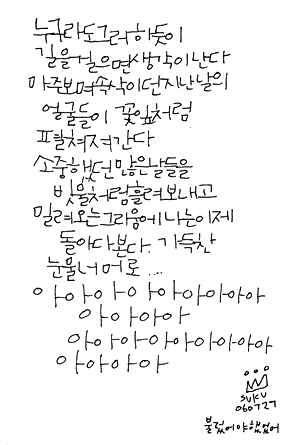 누구라도그러하듯이
길을걸으면생각이난다
마주보며속삭이던지난날의
얼굴들이 꽃잎처럼
펼쳐져간다
소중했던많은날들을
빗물처럼흘려보내고
밀려오는그리움에나는이제
돌아다본다. 가득찬
눈물너머로 ....
아아아아아아아아아
아아아아
아아아아아아아아
아아아아
SUKU
060727
불렀어야했었어